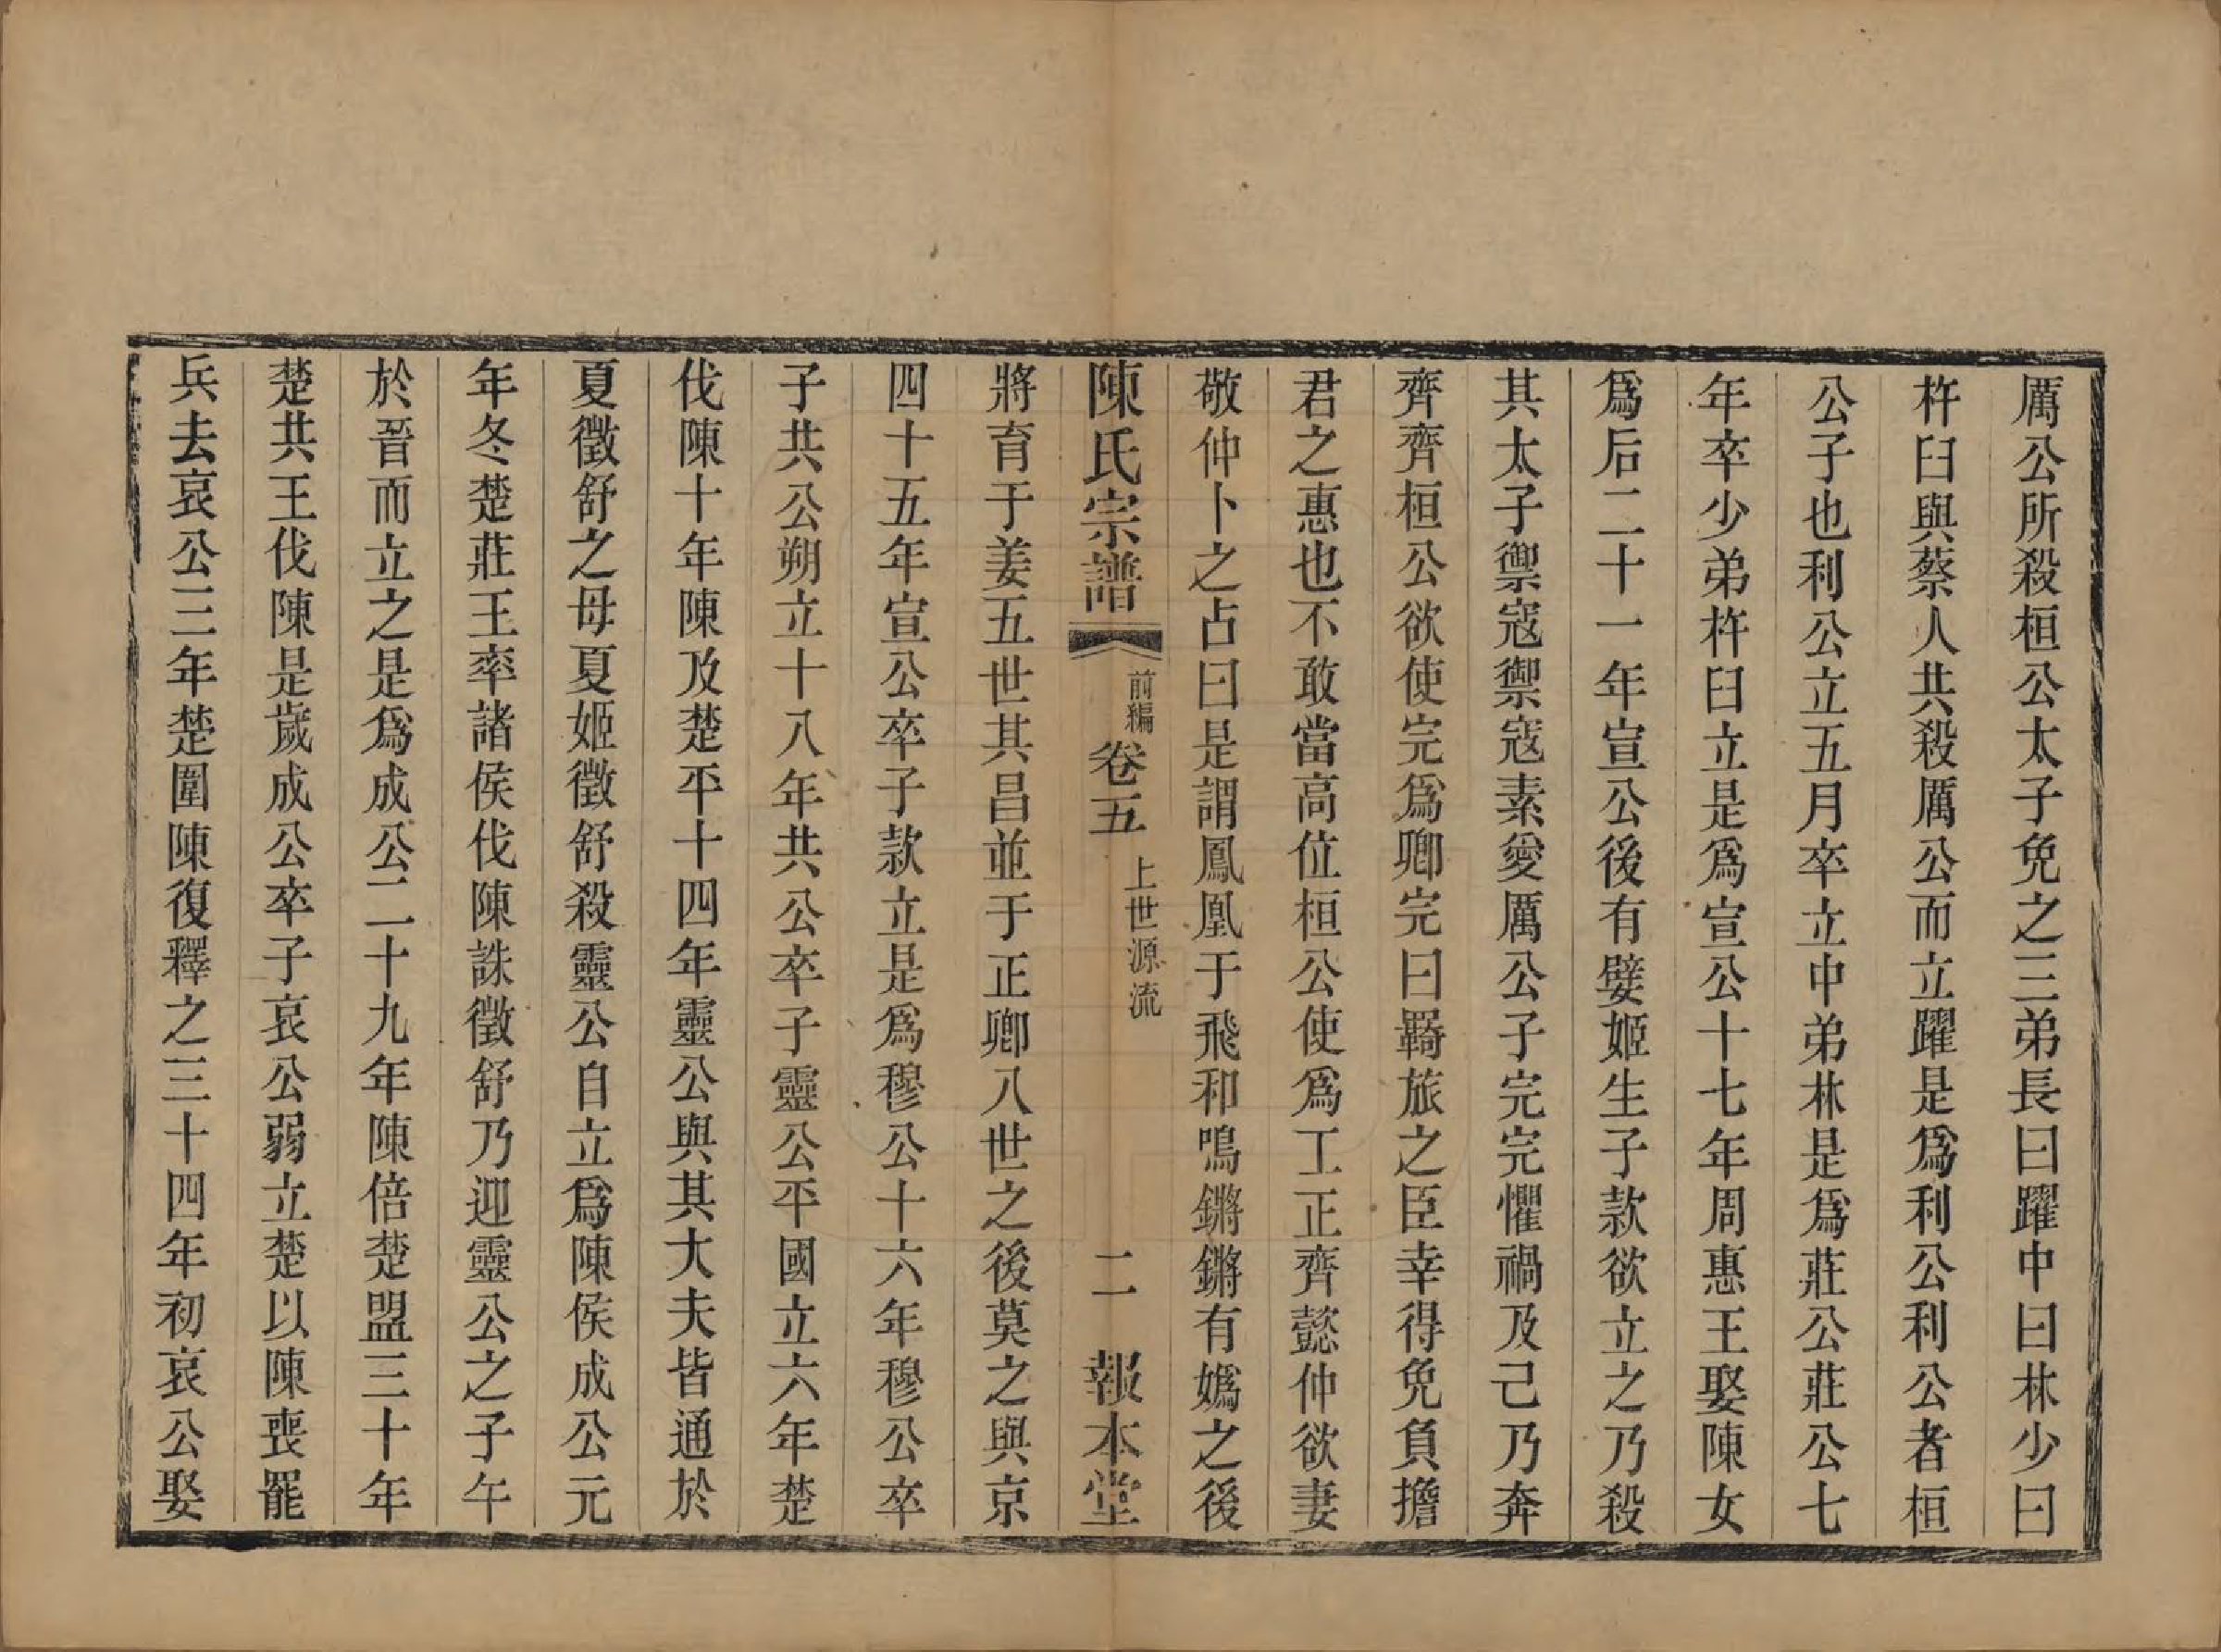 厲公所殺桓公太子免之三弟長曰躍中曰林少曰
杵臼與蔡人共殺厲公而立躍是爲利公利公者桓
公子也利公立五月卒立中弟林是爲莊公莊公七
年卒少弟杵臼立是爲宣公十七年周惠王娶陳女
爲后二十一年宣公後有嬖姬生子款欲立之乃殺
其太子禦寇禦寇素愛厲公子完完懼禍及己乃奔
齊齊桓公欲使完爲卿完曰羇旅之臣幸得免負擔
君之惠也不敢當高位桓公使爲工正齊懿仲欲妻
敬仲卜之占曰是謂鳳凰于飛和鳴鏘鏘有嬀之後
陳氏宗譜 前編 卷五 上世源流 二 報本堂
將育于姜五世其昌並于正卿八世之後莫之與京
四十五年宣公卒子款立是爲穆公十六年穆公卒
子共公朔立十八年共公卒子靈公平國立六年楚
伐陳十年陳及楚平十四年靈公與其大夫皆通於
夏徵舒之母夏姬徵舒殺靈公自立爲陳侯成公元
年冬楚莊王率諸侯伐陳誅徵舒乃迎靈公之子午
於晉而立之是爲成公二十九年陳倍楚盟三十年
楚共王伐陳是歲成公卒子哀公弱立楚以陳喪罷
兵去哀公三年楚圍陳復釋之三十四年初哀公娶